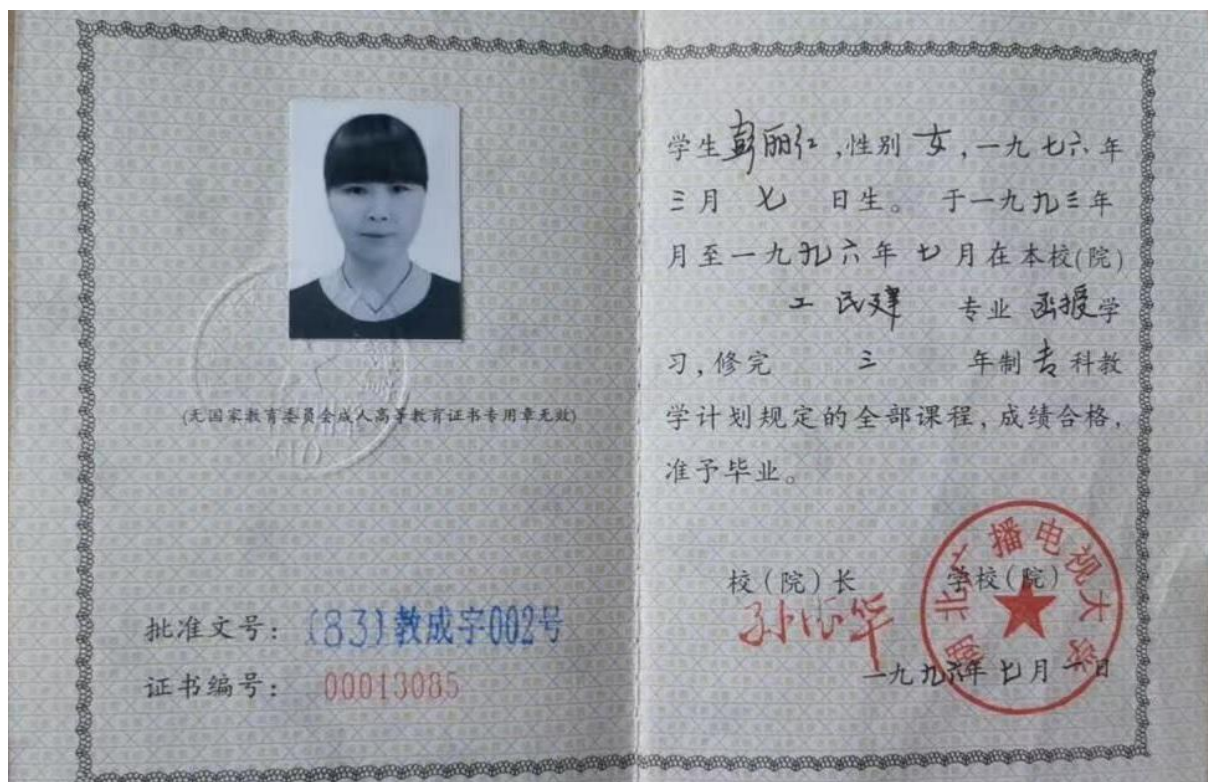 (无国家教育委员会成人高等教育证书专用章无效)
批准文号: (83)教成字002号
证书编号: 00013085
学生彭丽红,性别 女,一九七六年
三月 七 日生。 于一九九三年
月至一九九六年 七 月在本校(院)
工民建 专业 函授学
习,修完 三 年制专科教
学计划规定的全部课程,成绩合格,
准予毕业。
校(院)长 学校(院)
湖北广播电视大学
一九九六年 七月 一日